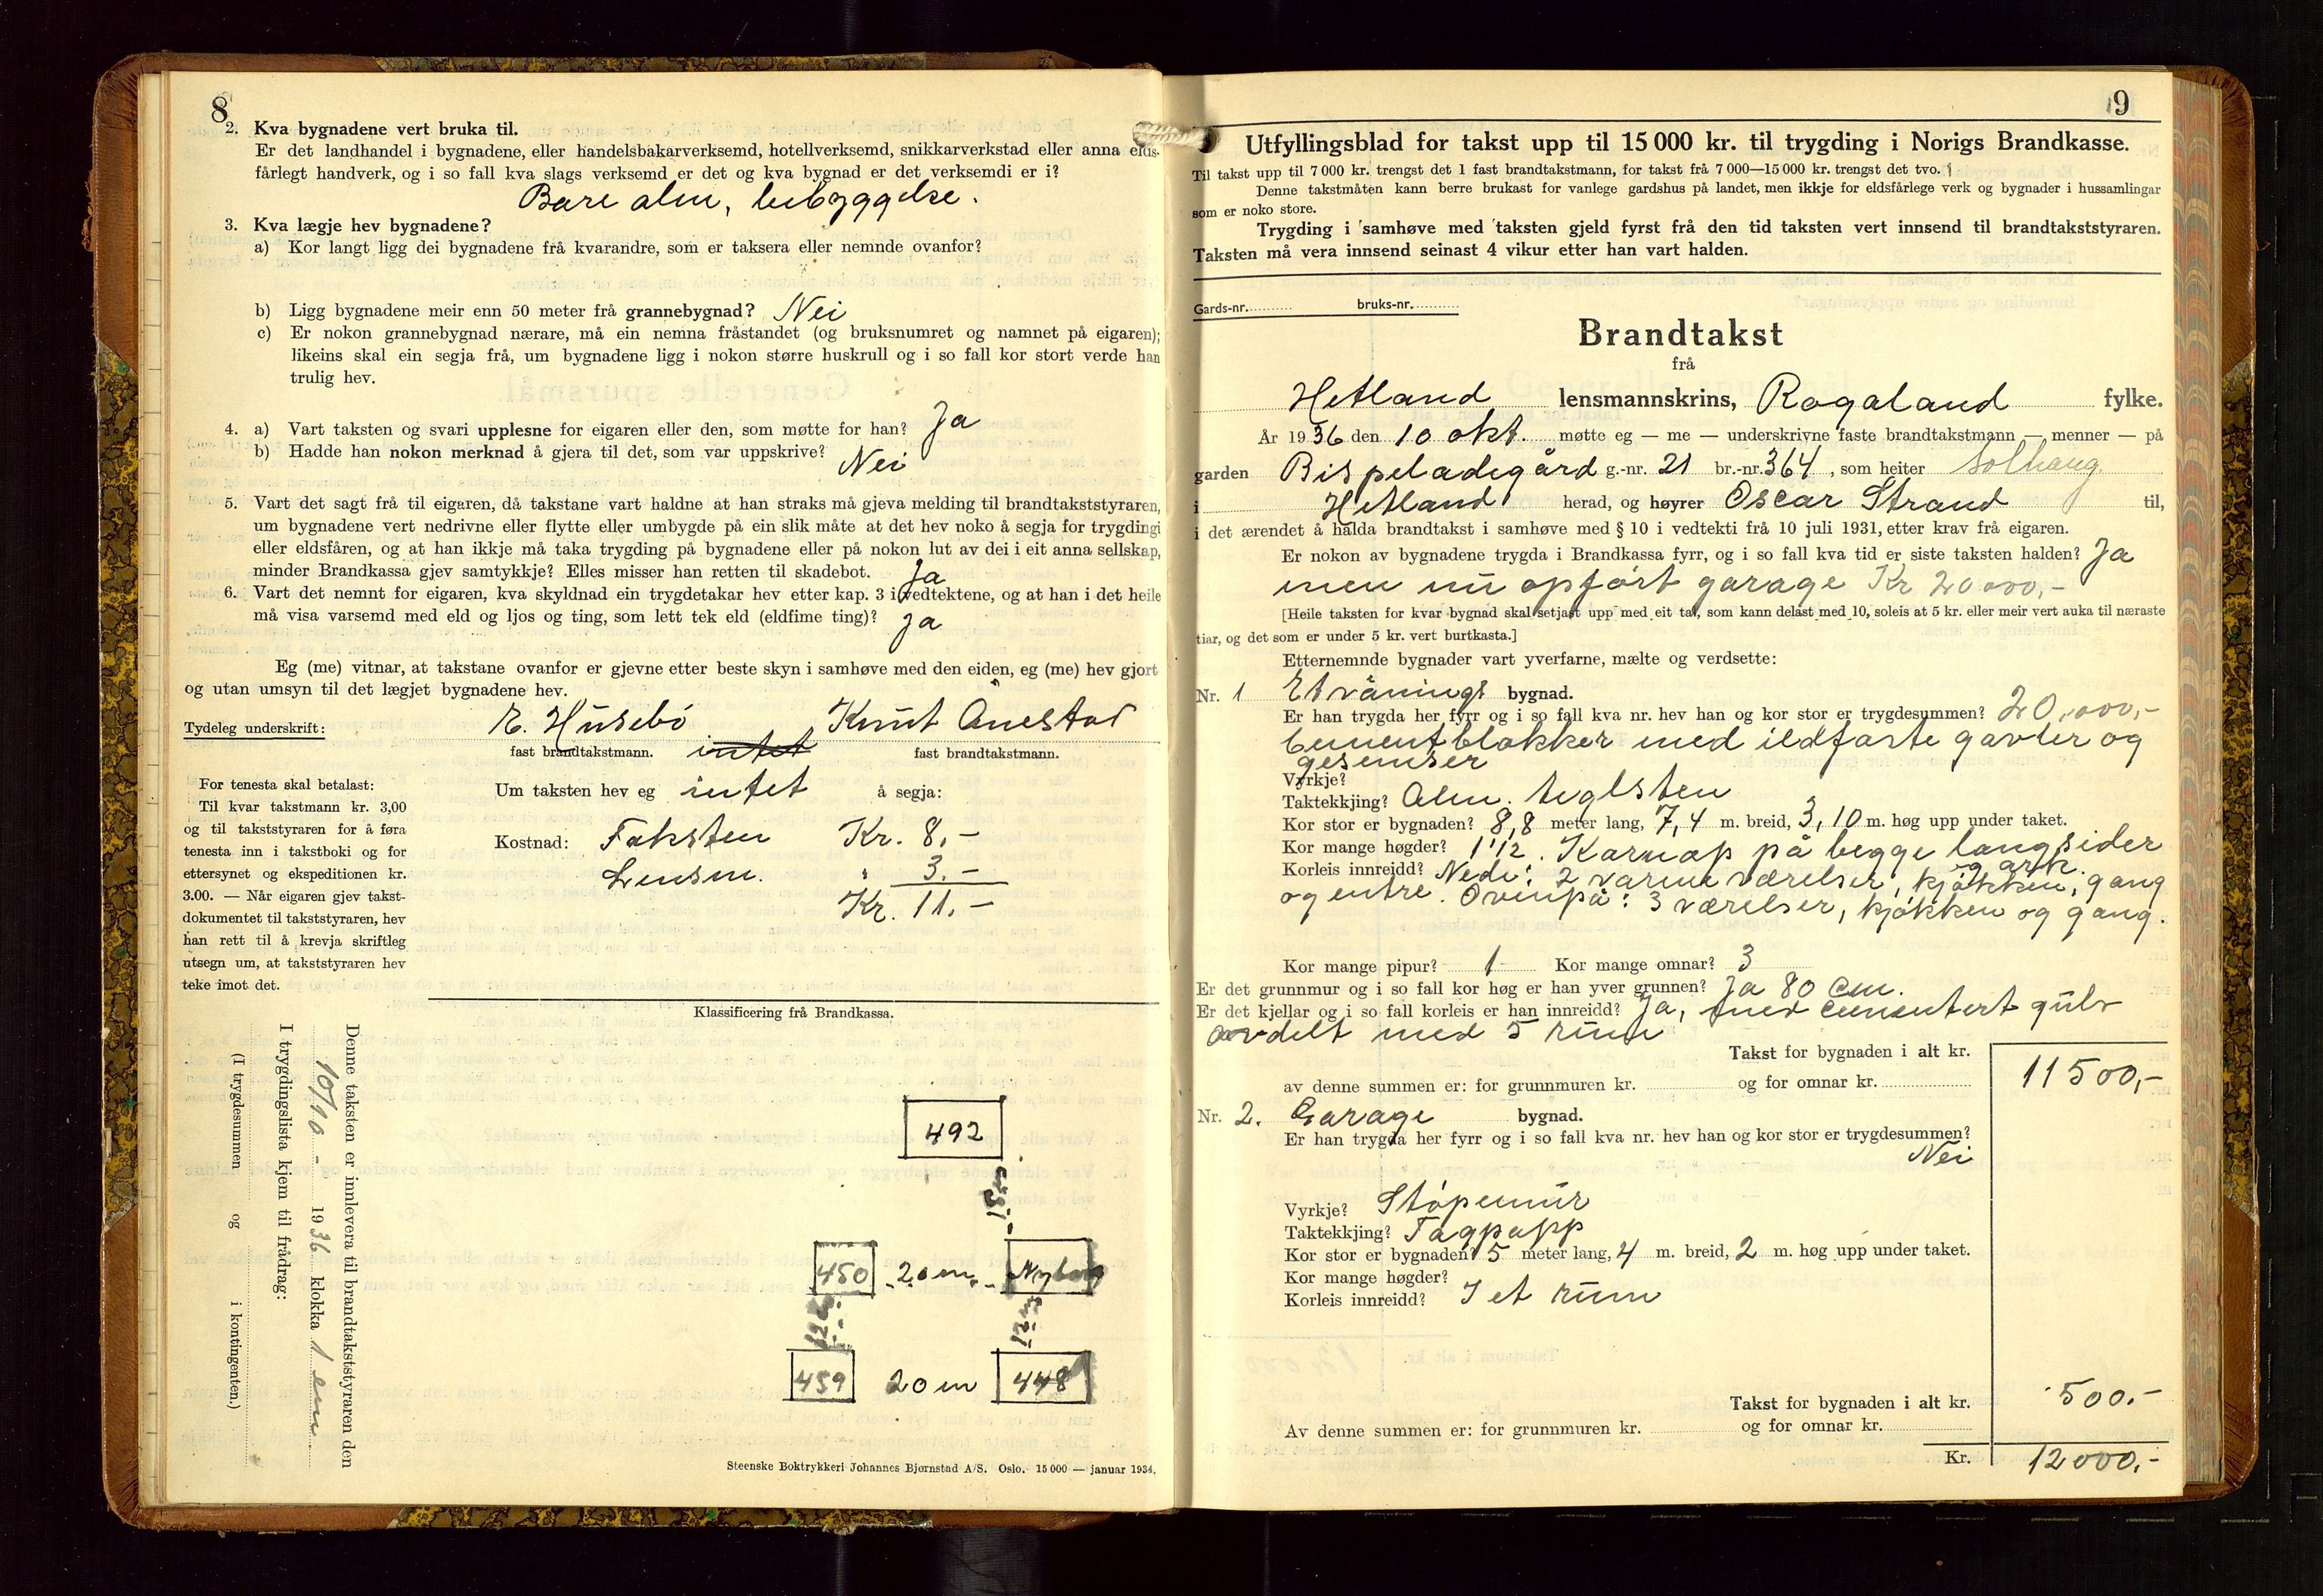 8
2. Kva bygnadene vert bruka til.
Er det landhandel i bygnadene, eller handelsbakarverksemd, hotellverksemd, snikkarverkstad eller anna elds-
fårlegt handverk, og i so fall kva slags verksemd er det og kva bygnad er det verksemdi er i?
Bare alm, bebyggelse.
3. Kva lægje hev bygnadene?
a) Kor langt ligg dei bygnadene frå kvarandre, som er taksera eller nemnde ovanfor?
b) Ligg bygnadene meir enn 50 meter frå grannebygnad? Nei
c) Er nokon grannebygnad nærare, må ein nemna fråstandet (og bruksnumret og namnet på eigaren);
likeins skal ein segja frå, um bygnadene ligg i nokon større huskrull og i so fall kor stort verde han
trulig hev.
4. a) Vart taksten og svari upplesne for eigaren eller den, som møtte for han? Ja
b) Hadde han nokon merknad å gjera til det, som var uppskrive? Nei
5. Vart det sagt frå til eigaren, då takstane vart haldne at han straks må gjeva melding til brandtakststyraren,
um bygnadene vert nedrivne eller flytte eller umbygde på ein slik måte at det hev noko å segja for trygdingi
eller eldsfåren, og at han ikkje må taka trygding på bygnadene eller på nokon lut av dei i eit anna sellskap,
minder Brandkassa gjev samtykkje? Elles misser han retten til skadebot. Ja
6. Vart det nemnt for eigaren, kva skyldnad ein trygdetakar hev etter kap. 3 i vedtektene, og at han i det heile
må visa varsemd med eld og ljos og ting, som lett tek eld (eldfime ting)? Ja
Eg (me) vitnar, at takstane ovanfor er gjevne etter beste skyn i samhøve med den eiden, eg (me) hev gjort
og utan umsyn til det lægjet bygnadene hev.
Tydeleg underskrift: E. Husebö Knut Anestad
fast brandtakstmann. intet fast brandtakstmann.
For tenesta skal betalast:
Til kvar takstmann kr. 3,00
og til takststyraren for å føra
tenesta inn i takstboki og for
ettersynet og ekspeditionen kr.
3.00. — Når eigaren gjev takst-
dokumentet til takststyraren, hev
han rett til å krevja skriftleg
utsegn um, at takststyraren hev
teke imot det.
Um taksten hev eg intet å segja:
Kostnad: Taksten Kr. 8,-
Lensm. " 3.-
Kr. 11.-
Klassificering frå Brandkassa.
Denne taksten er innlevera til brandtakststyraren den
10/10 - 1936 klokka 1 em
I trygdingslista kjem til frådrag:
(I trygdesummen og i kontingenten.)
492
450 20 m Nybyg
459 20 m 448
Steenske Boktrykkeri Johannes Bjørnstad A/S. Oslo. 15 000 — januar 1934.
9
Utfyllingsblad for takst upp til 15 000 kr. til trygding i Norigs Brandkasse.
Til takst upp til 7 000 kr. trengst det 1 fast brandtakstmann, for takst frå 7 000—15 000 kr. trengst det tvo.
Denne takstmåten kann berre brukast for vanlege gardshus på landet, men ikkje for eldsfårlege verk og bygnader i hussamlingar
som er noko store.
Trygding i samhøve med taksten gjeld fyrst frå den tid taksten vert innsend til brandtakststyraren.
Taksten må vera innsend seinast 4 vikur etter han vart halden.
Gards-nr. bruks-nr.
Brandtakst
frå
Hetland lensmannskrins, Rogaland fylke.
År 1936 den 10 okt. møtte eg — me — underskrivne faste brandtakstmann — menner — på
garden Bispeladegård g.-nr. 21 br.-nr. 364, som heiter Solhaug.
i Hetland herad, og høyrer Oscar Strand til,
i det ærendet å halda brandtakst i samhøve med § 10 i vedtekti frå 10 juli 1931, etter krav frå eigaren.
Er nokon av bygnadene trygda i Brandkassa fyrr, og i so fall kva tid er siste taksten halden? Ja
men nu opført garage Kr 20000,-
[Heile taksten for kvar bygnad skal setjast upp med eit tal, som kann delast med 10, soleis at 5 kr. eller meir vert auka til næraste
tiar, og det som er under 5 kr. vert burtkasta.]
Etternemnde bygnader vart yverfarne, mælte og verdsette:
Nr. 1 Etvånings bygnad.
Er han trygda her fyrr og i so fall kva nr. hev han og kor stor er trygdesummen? 20.000,-
Cementblokker med ildfaste gavler og
gesemser
Vyrkje?
Taktekkjing? Alm. teglsten
Kor stor er bygnaden? 8,8 meter lang, 7,4 m. breid, 3,10 m. høg upp under taket.
Kor mange høgder? 1 1/2. Karnap på begge langsider
og ark.
Korleis innreidd? Nede: 2 varme værelser, kjøkken, gang
og entre. Ovenpå: 3 værelser, kjøkken og gang.
Kor mange pipur? 1 Kor mange omnar? 3
Er det grunnmur og i so fall kor høg er han yver grunnen? Ja 80 cm.
Er det kjellar og i so fall korleis er han innreidd? Ja, med cementert gulv
avdelt med 5 rum
Takst for bygnaden i alt kr. 11500,-
av denne summen er: for grunnmuren kr. og for omnar kr.
Nr. 2. Garage bygnad.
Er han trygda her fyrr og i so fall kva nr. hev han og kor stor er trygdesummen?
Nei
Vyrkje? Støpemur
Taktekkjing? Tagpapp
Kor stor er bygnaden? 5 meter lang, 4 m. breid, 2 m. høg upp under taket.
Kor mange høgder?
Korleis innreidd? I et rum
Takst for bygnaden i alt kr. 500.-
Av denne summen er: for grunnmuren kr. og for omnar kr.
Kr. 12000,-